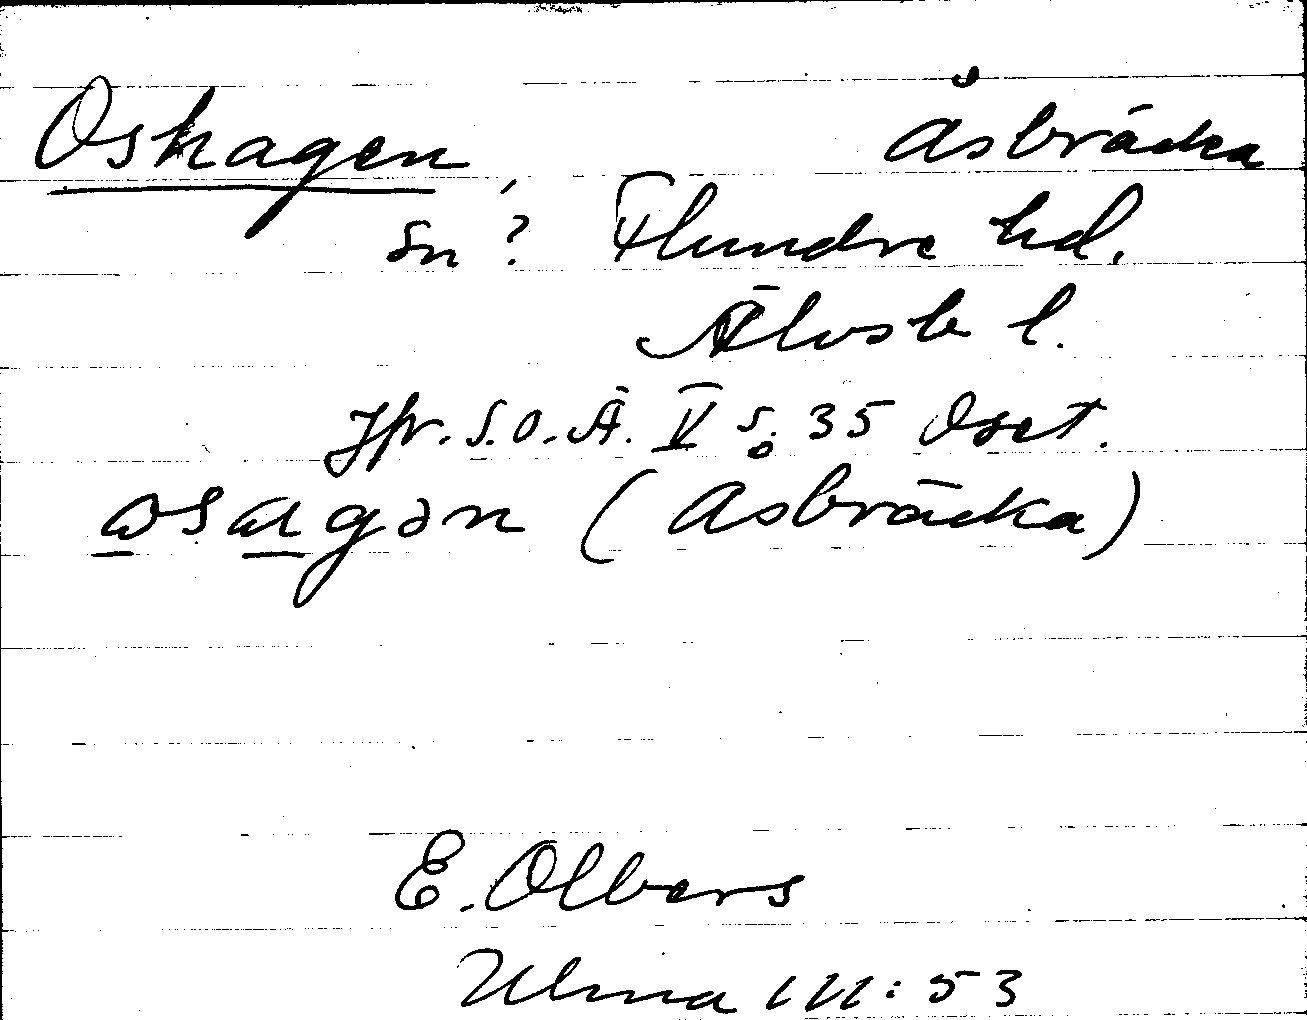 Oshagen, Åsbräcka
sn? Flundre hd.
Älvsb l.
Jfr. S.O.Ä. V s. 35 Oset.
osagən (Åsbräcka)
E. Olbers
Ulma 111:53